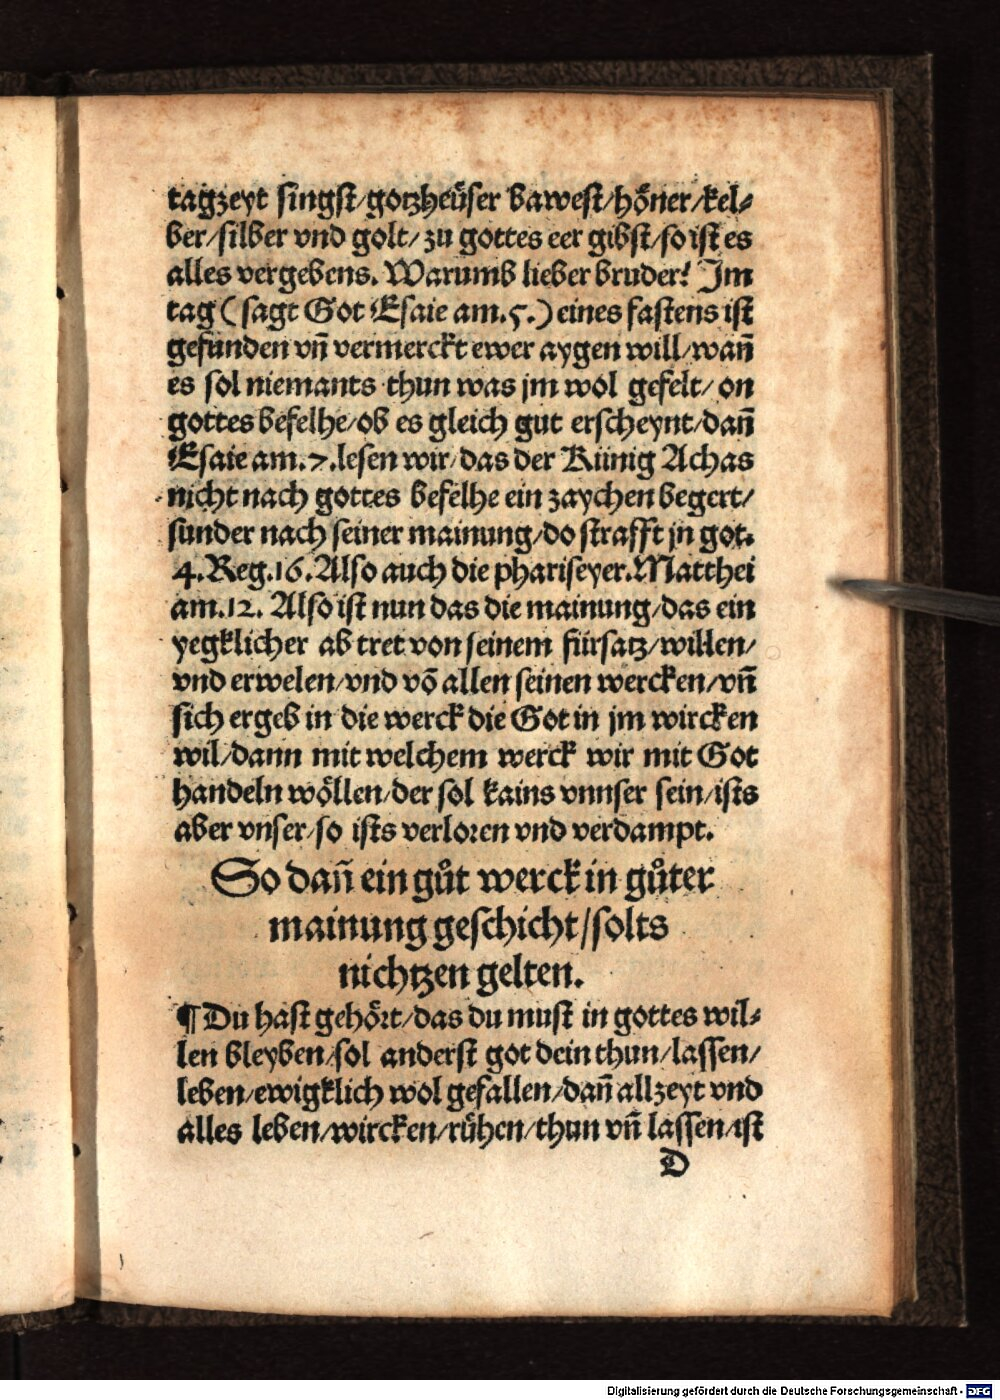 tagzeyt singst/gotzheüser bawest/höner/kel⸗
ber/silber vnd golt/zu gottes eer gibst/so ist es
alles vergebens. Warumb lieber bruder? Im
tag (sagt Got Esaie am.5.) eines fastens ist
gefunden vn̄ vermerckt ewer aygen will/wan̄
es sol niemants thun was jm wol gefelt/on
gottes befelhe/ob es gleich gut erscheynt/dan̄
Esaie am.7.lesen wir/das der Künig Achas
nicht nach gottes befelhe ein zaychen begert/
sunder nach seiner mainung/do strafft jn got.
4.Reg.16.Also auch die phariseyer.Matthei
am.12. Also ist nun das die mainung/das ein
yegklicher ab tret von seinem fürsatz/willen/
vnd erwelen/vnd vō allen seinen wercken/vn̄
sich ergeb in die werck die Got in jm wircken
wil/dann mit welchem werck wir mit Got
handeln wöllen/der sol kains vnnser sein/ists
aber vnser/so ists verloren vnd verdampt.
So dan̄ ein gůt werck in gůter
mainung geschicht/solts
nichtzen gelten.
¶Du hast gehört/das du must in gottes wil⸗
len bleyben/sol anderst got dein thun/lassen/
leben/ewigklich wol gefallen/dan̄ allzeyt vnd
alles leben/wircken/rühen/thun vn̄ lassen/ist
D
Digitalisierung gefördert durch die Deutsche Forschungsgemeinschaft - DFG